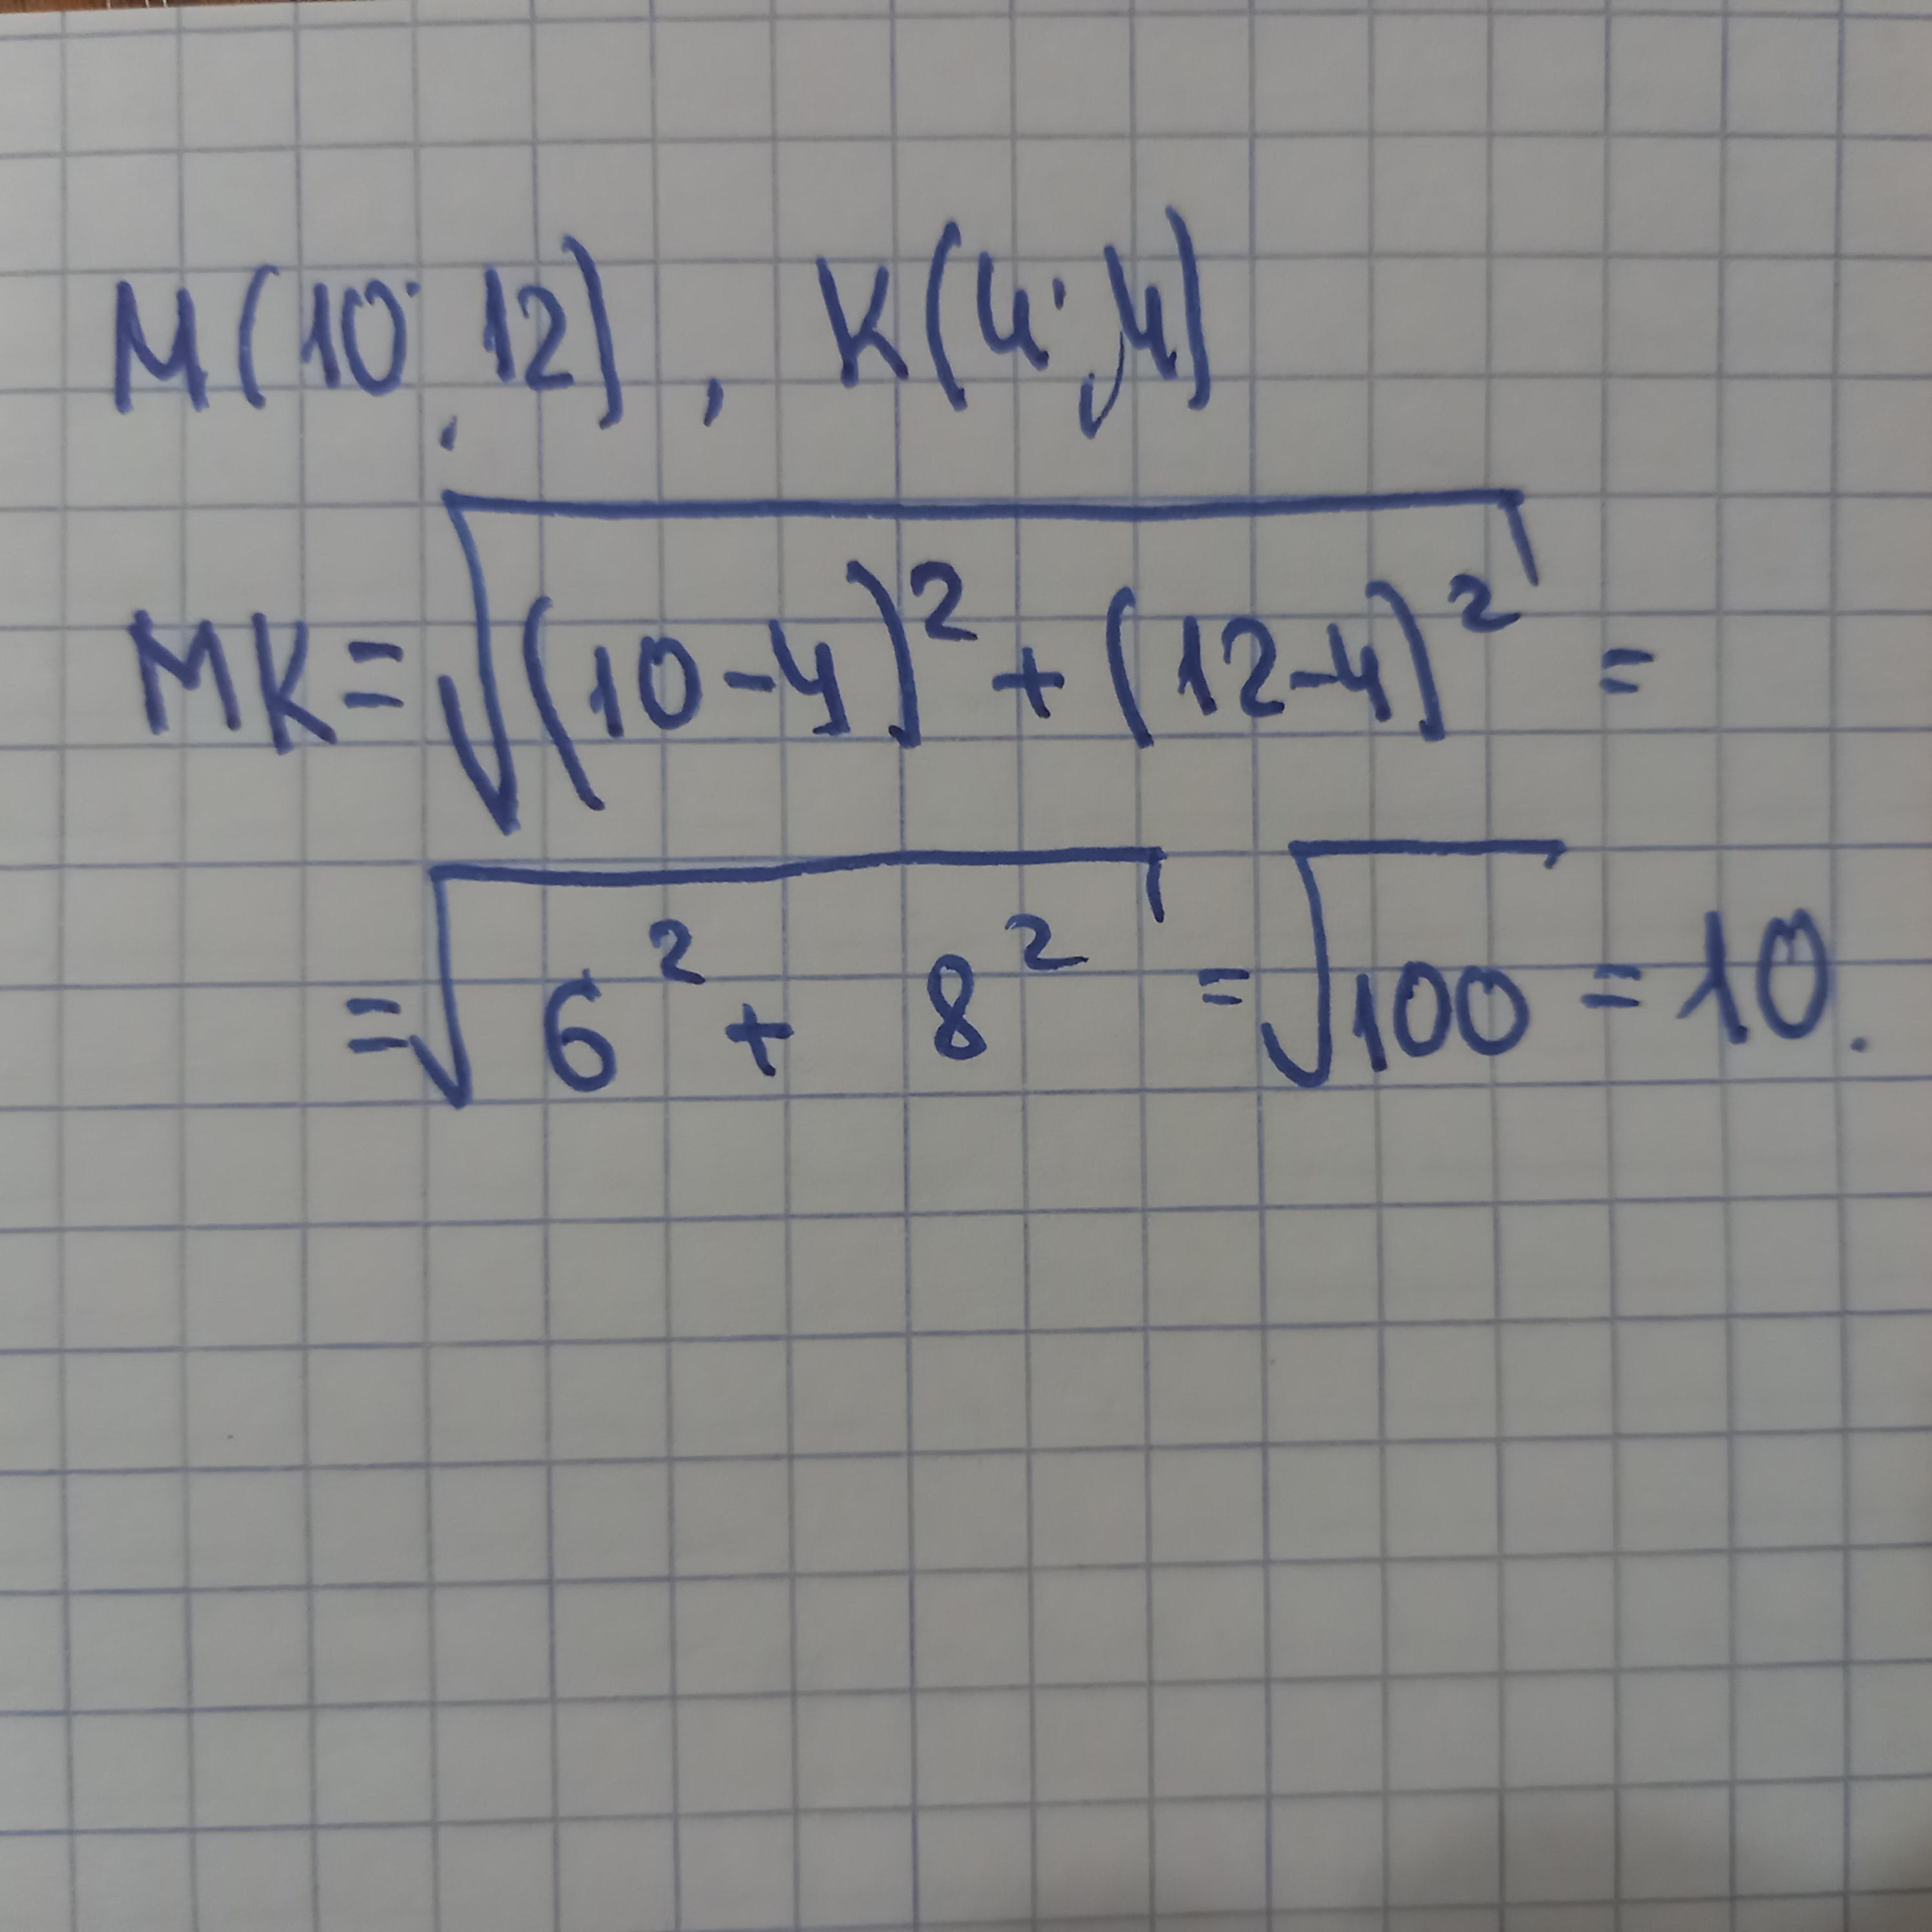 M(10; 12), K(4; 4)
MK=√(10-4)²+(12-4)² =
=√6²+ 8² =√100 = 10.